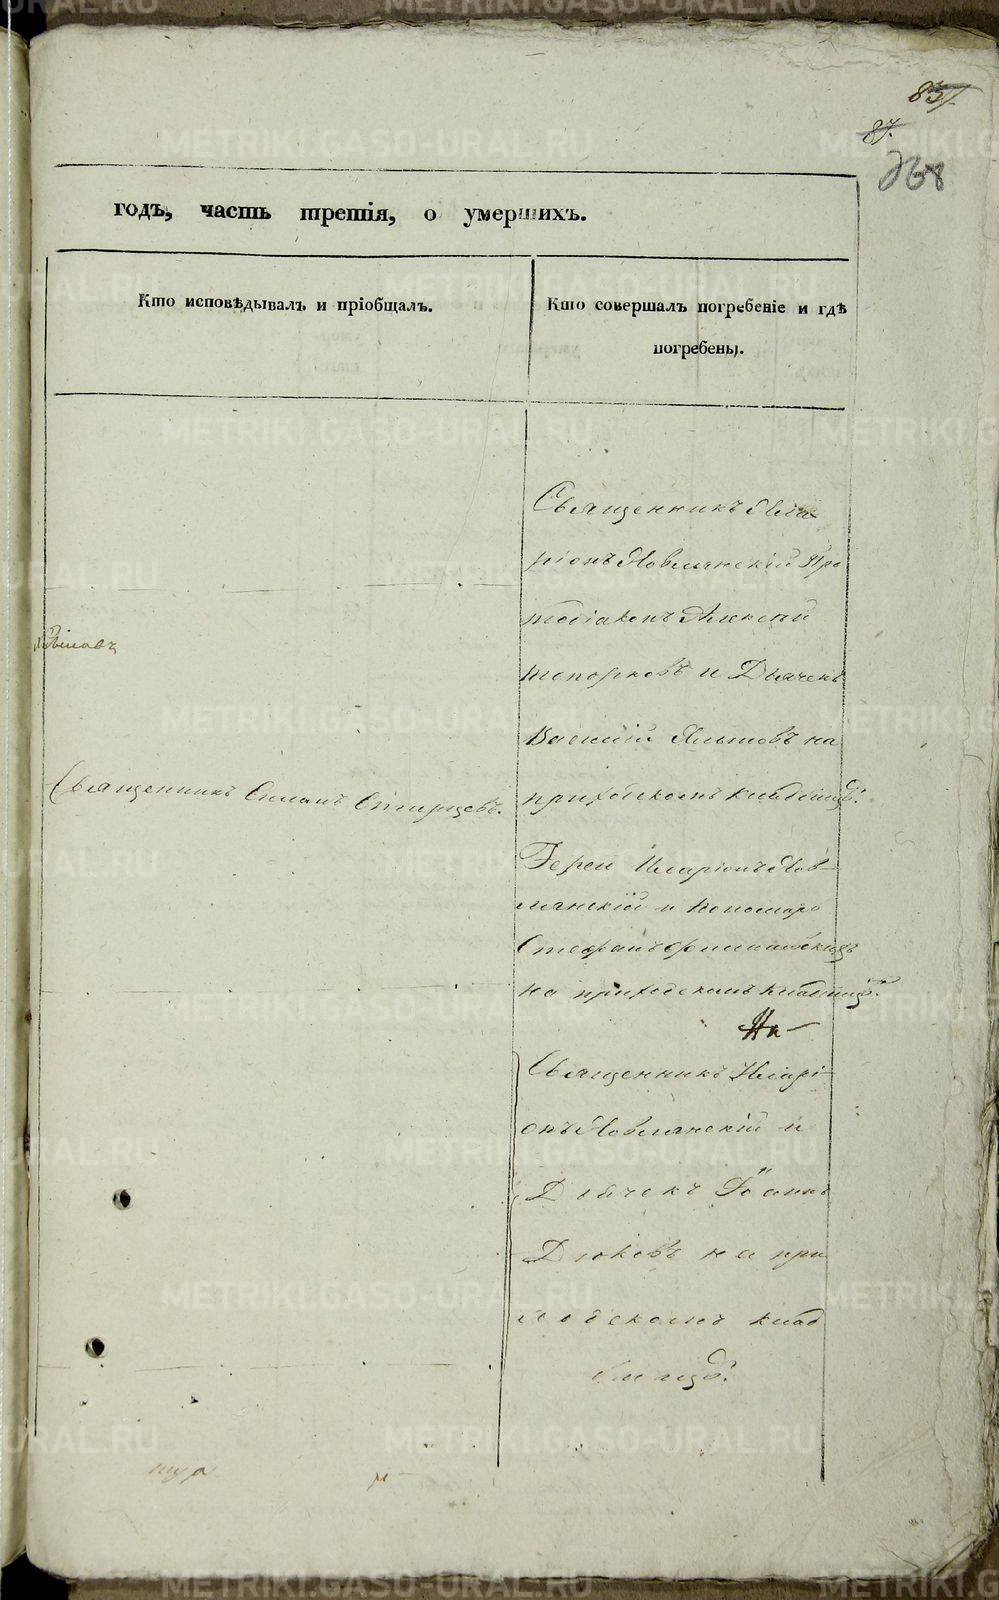 87.
268
годъ, часть третія, о умершихъ.
Кто исповѣдывалъ и пріобщалъ.
Кто совершалъ погребеніе и гдѣ
погребены.
Священникъ Ила
ріонъ Новлянскій Про
тодіаконъ Алексѣй
топорковъ и Дьячекъ
Василій на
приходскомъ кладбищѣ.
Священникъ
Іерей Иларіонъ Нов-
лянскій и Пономарь
Стефанъ
на приходскомъ кладбищѣ.
На-
Священникъ Иларі-
онъ Новлянскій и
Дьячекъ Іоаннъ
Дюковъ на при
ходскомъ клад
бищѣ.
METRIKI.GASO-URAL.RU